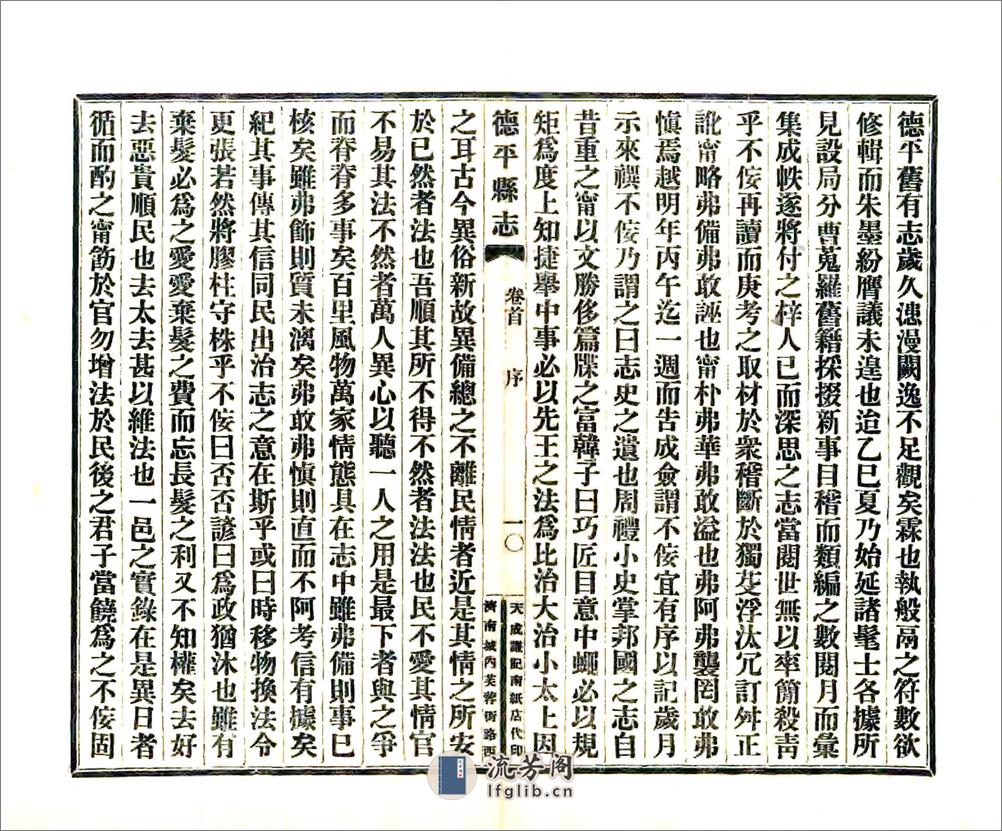 德平舊有志歲久漶漫闕逸不足觀矣霖也執般鬲之符數欲
修輯而朱墨紛膺議未遑也迨乙巳夏乃始延諸髦士各據所
見設局分曹蒐羅舊籍採掇新事目稽而類編之數閱月而彙
集成帙遂將付之梓人已而深思之志當閱世無以率簡殺靑
乎不侫再讀而庚考之取材於衆稽斷於獨芟浮汰冗訂舛正
訛甯略弗備弗敢誣也甯朴弗華弗敢溢也弗阿弗襲罔敢弗
愼焉越明年丙午迄一週而告成僉謂不侫宜有序以記歲月
示來禩不侫乃謂之曰志史之遺也周禮小史掌邦國之志自
昔重之甯以文勝侈篇牒之富韓子曰巧匠目意中繩必以規
矩爲度上知捷舉中事必以先王之法爲比治大治小太上因
德平縣志
卷首 序
一〇
天成謙記南紙店代印
濟南城內芙蓉街路西
之耳古今異俗新故異備總之不離民情者近是其情之所安
於已然者法也吾順其所不得不然者法法也民不愛其情官
不易其法不然者萬人異心以聽一人之用是最下者與之爭
而脊脊多事矣百里風物萬家情態具在志中雖弗備則事已
核矣雖弗飾則質未漓矣弗敢弗愼則直而不阿考信有據矣
紀其事傳其信同民出治志之意在斯乎或曰時移物換法令
更張若然將膠柱守株乎不侫曰否否諺曰爲政猶沐也雖有
棄髮必爲之愛愛棄髮之費而忘長髮之利又不知權矣去好
去惡貴順民也去太去甚以維法也一邑之實錄在是異日者
循而酌之甯葯於官勿增法於民後之君子當饒爲之不侫固
流芳阁
lfglib.cn